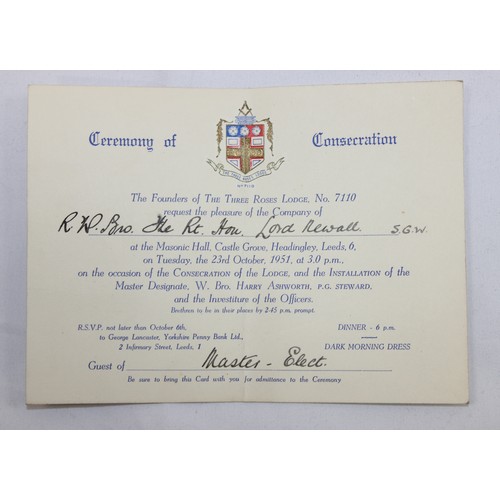 Ceremony of Consecration
THE THREE ROSES LODGE
Nº 7110
The Founders of THE THREE ROSES LODGE, No. 7110
request the pleasure of the Company of
R.W. Bro. The Rt. Hon. Lord Newall. S.G.W.
at the Masonic Hall, Castle Grove, Headingley, Leeds, 6,
on Tuesday, the 23rd October, 1951, at 3.0 p.m.,
on the occasion of the CONSECRATION OF THE LODGE, and the INSTALLATION of the
Master Designate, W. Bro. HARRY ASHWORTH, P.G. STEWARD,
and the Investiture of the Officers.
Brethren to be in their places by 2.45 p.m. prompt.
R.S.V.P. not later than October 6th, DINNER - 6 p.m.
to George Lancaster, Yorkshire Penny Bank Ltd.,
2 Infirmary Street, Leeds, 1 DARK MORNING DRESS
Guest of Master - Elect.
Be sure to bring this Card with you for admittance to the Ceremony